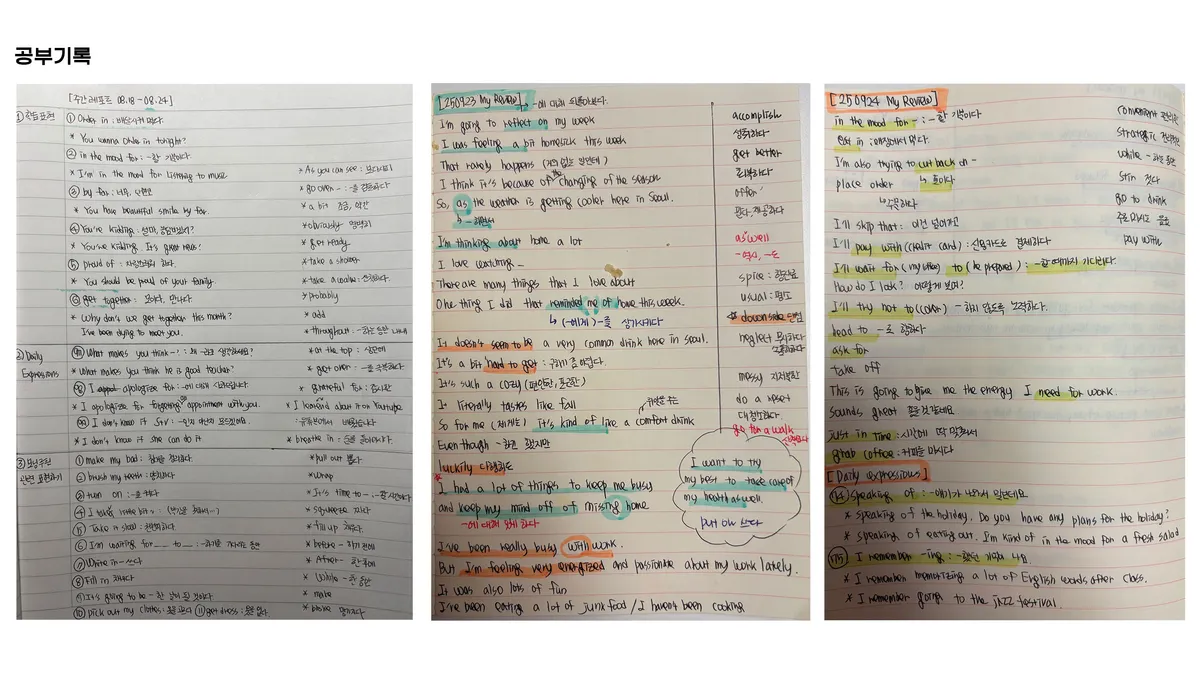 공부기록
[주간레포트 08.18 - 08.24]
① 학습표현
① Order in : 배달시켜 먹다.
* You wanna order in tonight?
② in the mood for : ~할 기분이다
* I'm in the mood for listening to music
③ by far : 너무, 단연코
* You have beautiful smile by far.
④ You're kidding :
* You're kidding. It's great news!
⑤ proud of : 자랑스러워 하다.
* You should be proud of your family.
⑥ get together : 모이다, 만나다
* Why don't we get together this month?
I've been dying to meet you.
* As you can see : 보다시피
* go over - : -을 검토하다
* a bit 조금, 약간
* obviously 명백히
* get ready
* take a shower
* take a walk : 산책하다.
* probably
* add
* throughout : -하는 동안 내내
② Daily Expressions
What makes you think - ! : 왜 -라고 생각하세요?
* What makes you think he is good teacher?
I apologize for : -에 대해 사과드립니다
* I apologize for forgetting appointment with you.
I don't know if S+V : -인지 아닌지 모르겠어요.
* I don't know if she can do it
* at the top : 상단에
* get over : -을 극복하다
grateful for : 감사한
* I learned about it on Youtube
유튜브에서 배웠습니다
* breathe in : 숨을 들이마시다.
③
① make my bed : 침대를 정리하다.
② brush my teeth : 양치하다
③ turn on : -을 켜다
⑤ Take a shower : 샤워하다
⑥ I'm waiting for __ to __ :
⑦ Write in - 쓰다
⑧ Fill in 채우다
It's going to be - 한 날이 될 것이다
⑩ pick out my clothes : 옷을 고르다 ⑪ get dress : 옷을 입다.
* pull out 뽑다
* wrap
* It's time to - : -할 시간이다
* squeeze 짜다
* fill up 채우다
* before - 하기 전에
* After - 한 후에
* While - 한 동안
* make
[250923 My Review] → -에 대해 되돌아보다.
I'm going to reflect on my week
I was feeling a bit homesick this week
That rarely happens (거의 없는 일인데)
I think it's because of the changing of the season
So, as the weather is getting cooler here in Seoul.
↳ -하면서
I'm thinking about home a lot
I love watching _
There are many things that I love about
One thing I did that reminded me of home this week.
↳ (-에게) -를 상기시키다
It doesn't seem to be a very common drink here in seoul.
It's a bit hard to get : 구하기 좀 어렵다.
It's such a cozy (편안한, 포근한)
It literally tastes like fall
So for me (저에게) it's kind of like a comfort drink
Even though - 하긴 했지만
luckily 다행히도
* I had a lot of things to keep me busy
and keep my mind off of missing home
-에 대해 잊게 하다
I've been really busy with work.
But I'm feeling very energized and passionate about my work lately.
It was also lots of fun
I've been eating a lot of junk food / I haven't been cooking
accomplish
성취하다
get better
offer
as well
-역시, -도
spice : 향신료
usual : 평소
* downside 단점
neglect
messy 지저분한
do a reset
go for a walk
산책하다
I want to try
my best to take care of
my health as well.
put on 쓰다
[250924 My Review]
in the mood for - : -할 기분이다
Eat in : 매장에서 먹다.
I'm also trying to cut back on -
↳ 줄이다
place order
↳ 주문하다
I'll skip that : 이건 넘어가고
I'll pay with (credit card) : 신용카드로 결제하다
I'll wait for (my coffee) to (be prepared) : -할 때까지 기다리다.
How do I look? 어떻게 보여?
I'll try not to (cover) - 하지 않도록 노력하다.
head to - 로 향하다
ask for
take off
This is going to give me the energy I need for work.
Sounds great 좋을것같네요
Just in time : 시간에 딱 맞춰서
grab coffee : 커피를 마시다
convenient 편리한
strategic 전략적인
while - 하는 동안
stir 젓다
go to drink
주로 마시고 있는 음료
pay with
[Daily expressions]
174 speaking of : -얘기가 나와서 말인데요.
* speaking of the holiday. Do you have any plans for the holiday?
* speaking of eating out. I'm kind of in the mood for a fresh salad
175 I remember -ing : -했던 기억이 나요
* I remember memorizing a lot of English words after class.
* I remember going to the jazz festival.